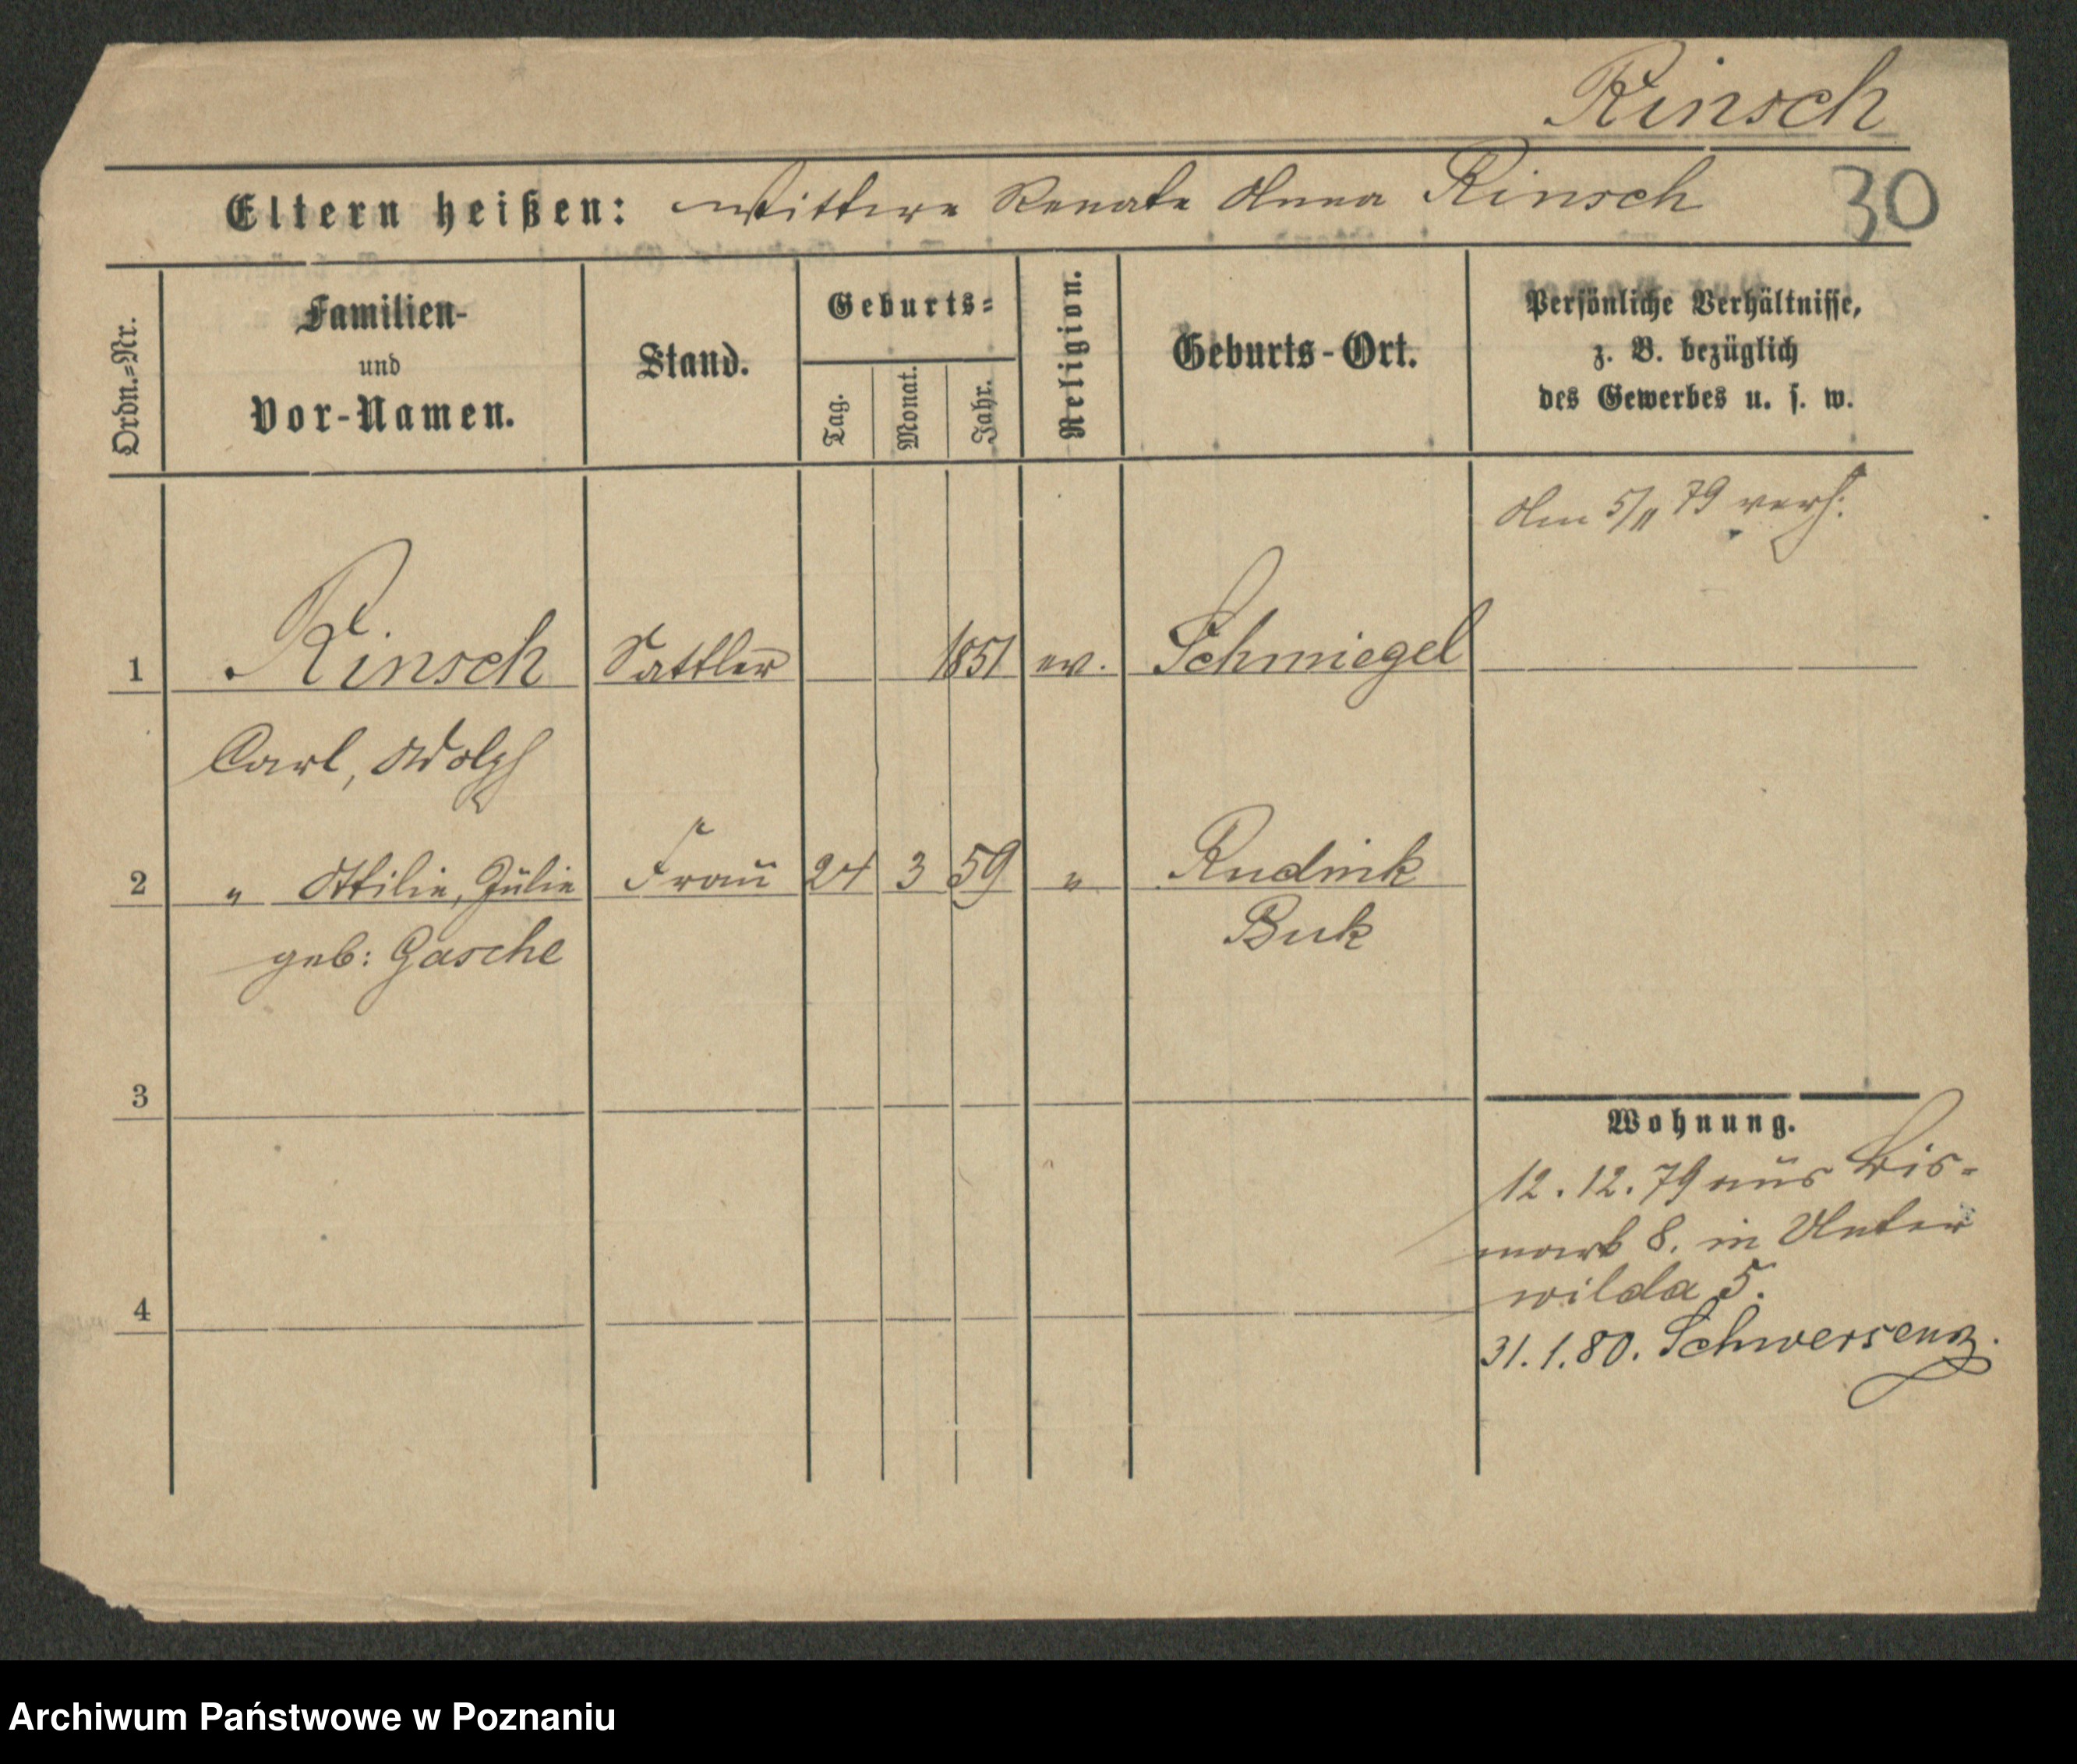 Rinsch
Eltern heißen: Wittwe Renate Anna Rinsch 30
Ordn.=Nr.
Familien-
und
Vor-Namen.
Stand.
Geburts=
Tag.
Monat.
Jahr.
Religion.
Geburts-Ort.
Persönliche Verhältnisse,
z. B. bezüglich
des Gewerbes u. s. w.
Am 5/11 79 verh:
1 Rinsch Sattler 1851 ev. Schmiegel
Carl, Adolph
2 " Ottilie, Julie Frau 24 3 59 " Rudnik
geb: Gasche Buk
3
Wohnung.
12.12.79 aus Bis-
mark 8. in Unter
wilda 5.
4
31.1.80. Schwersenz.
Archiwum Państwowe w Poznaniu